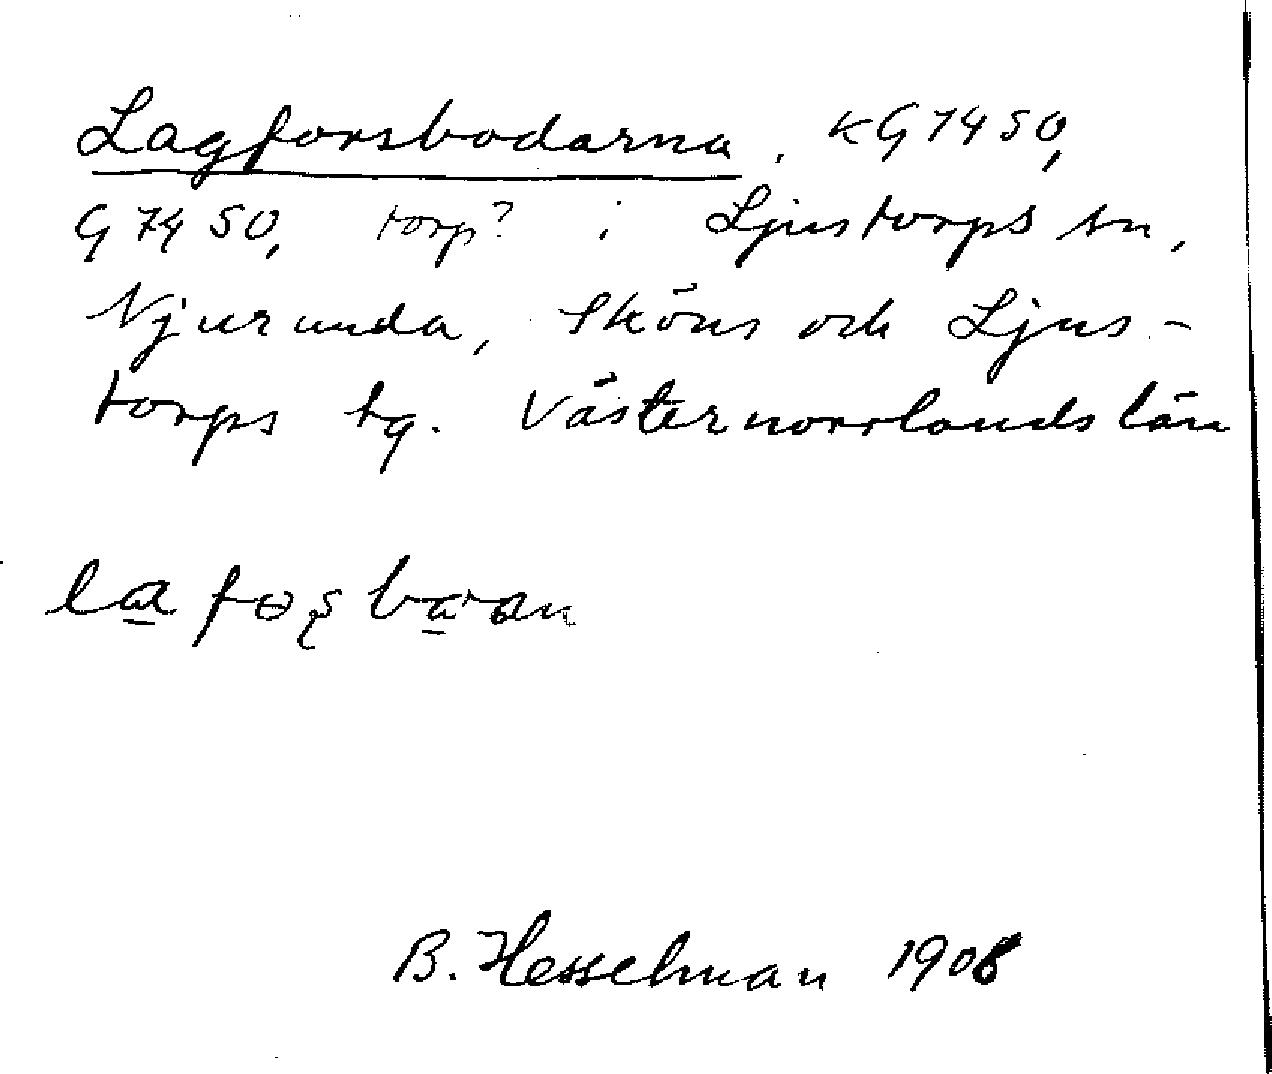 Lagforsbodarna, KG 7450,
G 7450, torp? i Ljustorps sn,
Njurunda, Sköns och Ljus-
torps tg. Västernorrlands län
B. Hesselman 1908